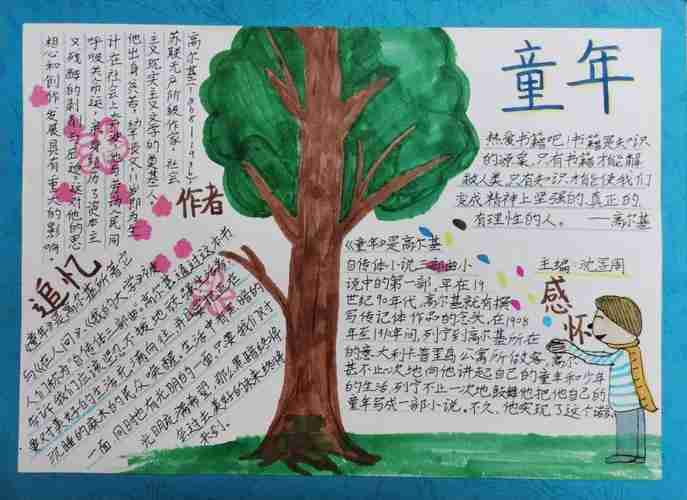 童年
热爱书籍吧！书籍是知识
的源泉,只有书籍才能解
救人类,只有知识才能使我们
变成精神上坚强的、真正的、
有理性的人。 ——高尔基
主编:沈
作者
高尔基(1868-1936)
苏联无产阶级作家,社会
主义现实主义文学的奠基人。
他出身贫苦,幼年丧父,11岁即为生
计在社会上
呼吸
又残酷的剥削与压迫。这对他的思
想和创作发展具有重大的影响。
《童年》是高尔基
自传体小说三部曲小
说中的第一部,早在19
世纪90年代,高尔基就有撰
写传记体作品的念头,在1908
年至1910年间,列宁到高尔基所在
的意大利卡普里岛公寓所做客,高尔
基不止一次地向他讲起自己的童年和少年
的生活,列宁不止一次地鼓舞他把他自己的
童年写成一部小说,不久,他实现了这个
感怀
追忆
童年》是高尔基所著,它
与《在人间》、《我的大学》
人们称为自传体三部曲。高尔基通过这本书
告诉我们应该坚
要对美好的生活充满向往,并
沉睡的麻木的民众唤醒,生活中有黑暗的
一面,同时也有光明的一面,只要我们对
光明充满希望,那么黑暗终将
会过去,美好的未来终将
来到。